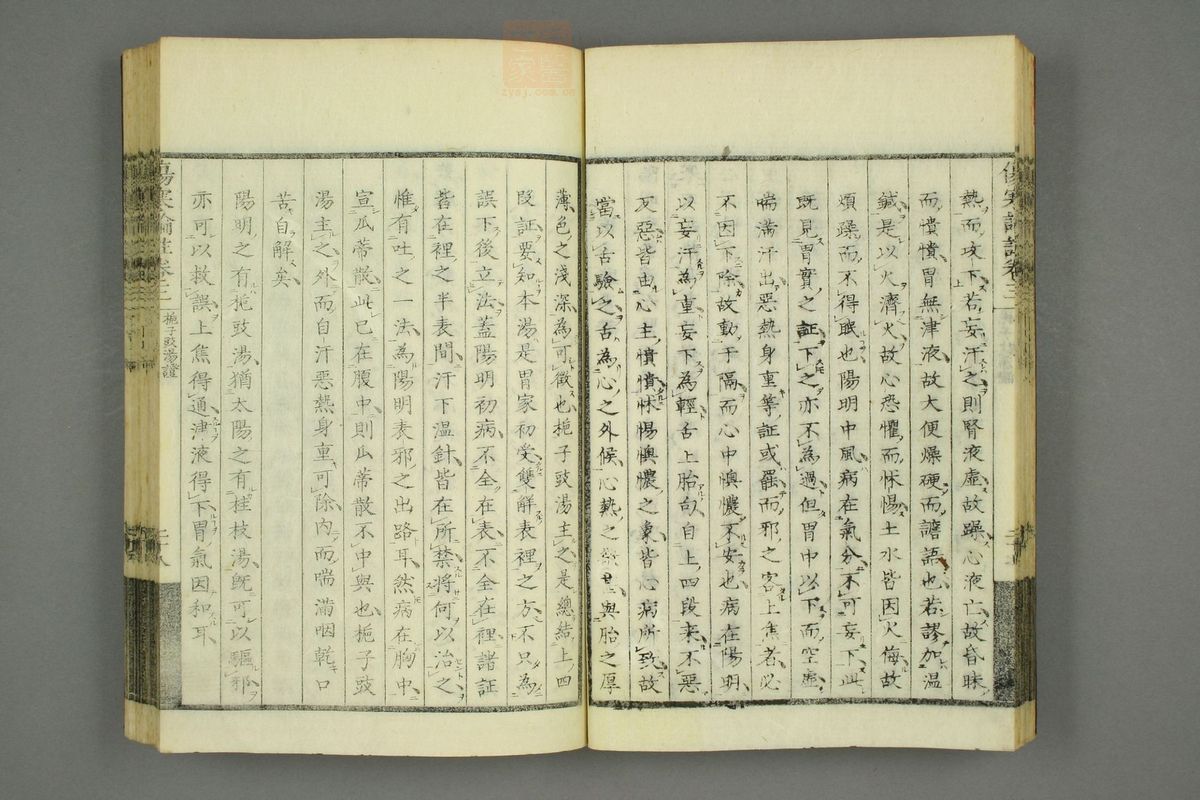 熱而攻下若妄汗之則腎液虛故躁心液亡故昏昧
而憒憒胃無津液故大便燥硬而譫語也若謬加温
鍼是以火濟火故心恐懼而怵惕土水皆因火侮故
煩躁而不得眠也陽明中風病在氣分不可妄下此
既見胃實之証下之亦不為過但胃中以下而空虛
喘滿汗出惡熱身重等証或罷而邪之客上焦者必
不因下除故動于隔而心中懊憹不安也病在陽明
以妄汗為重妄下為輕舌上胎句自上四段來不惡
反惡皆由心主憒憒怵惕懊憹之象皆心病所致故
當以舌驗之舌為心之外候心熱之與胎之厚
薄色之淺深為可徵也梔子豉湯主之是總結上四
段証要知本湯是胃家初受雙解表裡之方不只為
誤下後立法蓋陽明初病不全在表不全在裡諸証
皆在裡之半表間汗下温針皆在所禁將何以治之
惟有吐之一法為陽明表邪之出路耳然病在胸中
宣瓜蒂散此已在腹中則瓜蒂散不中與也梔子豉
湯主之外而自汗惡熱身重可除內而喘滿咽乾口
苦自解矣
陽明之有梔豉湯猶太陽之有桂枝湯既可以驅邪
亦可以救誤上焦得通津液得下胃氣因和耳
梔子豉湯證
zysj.com.cn